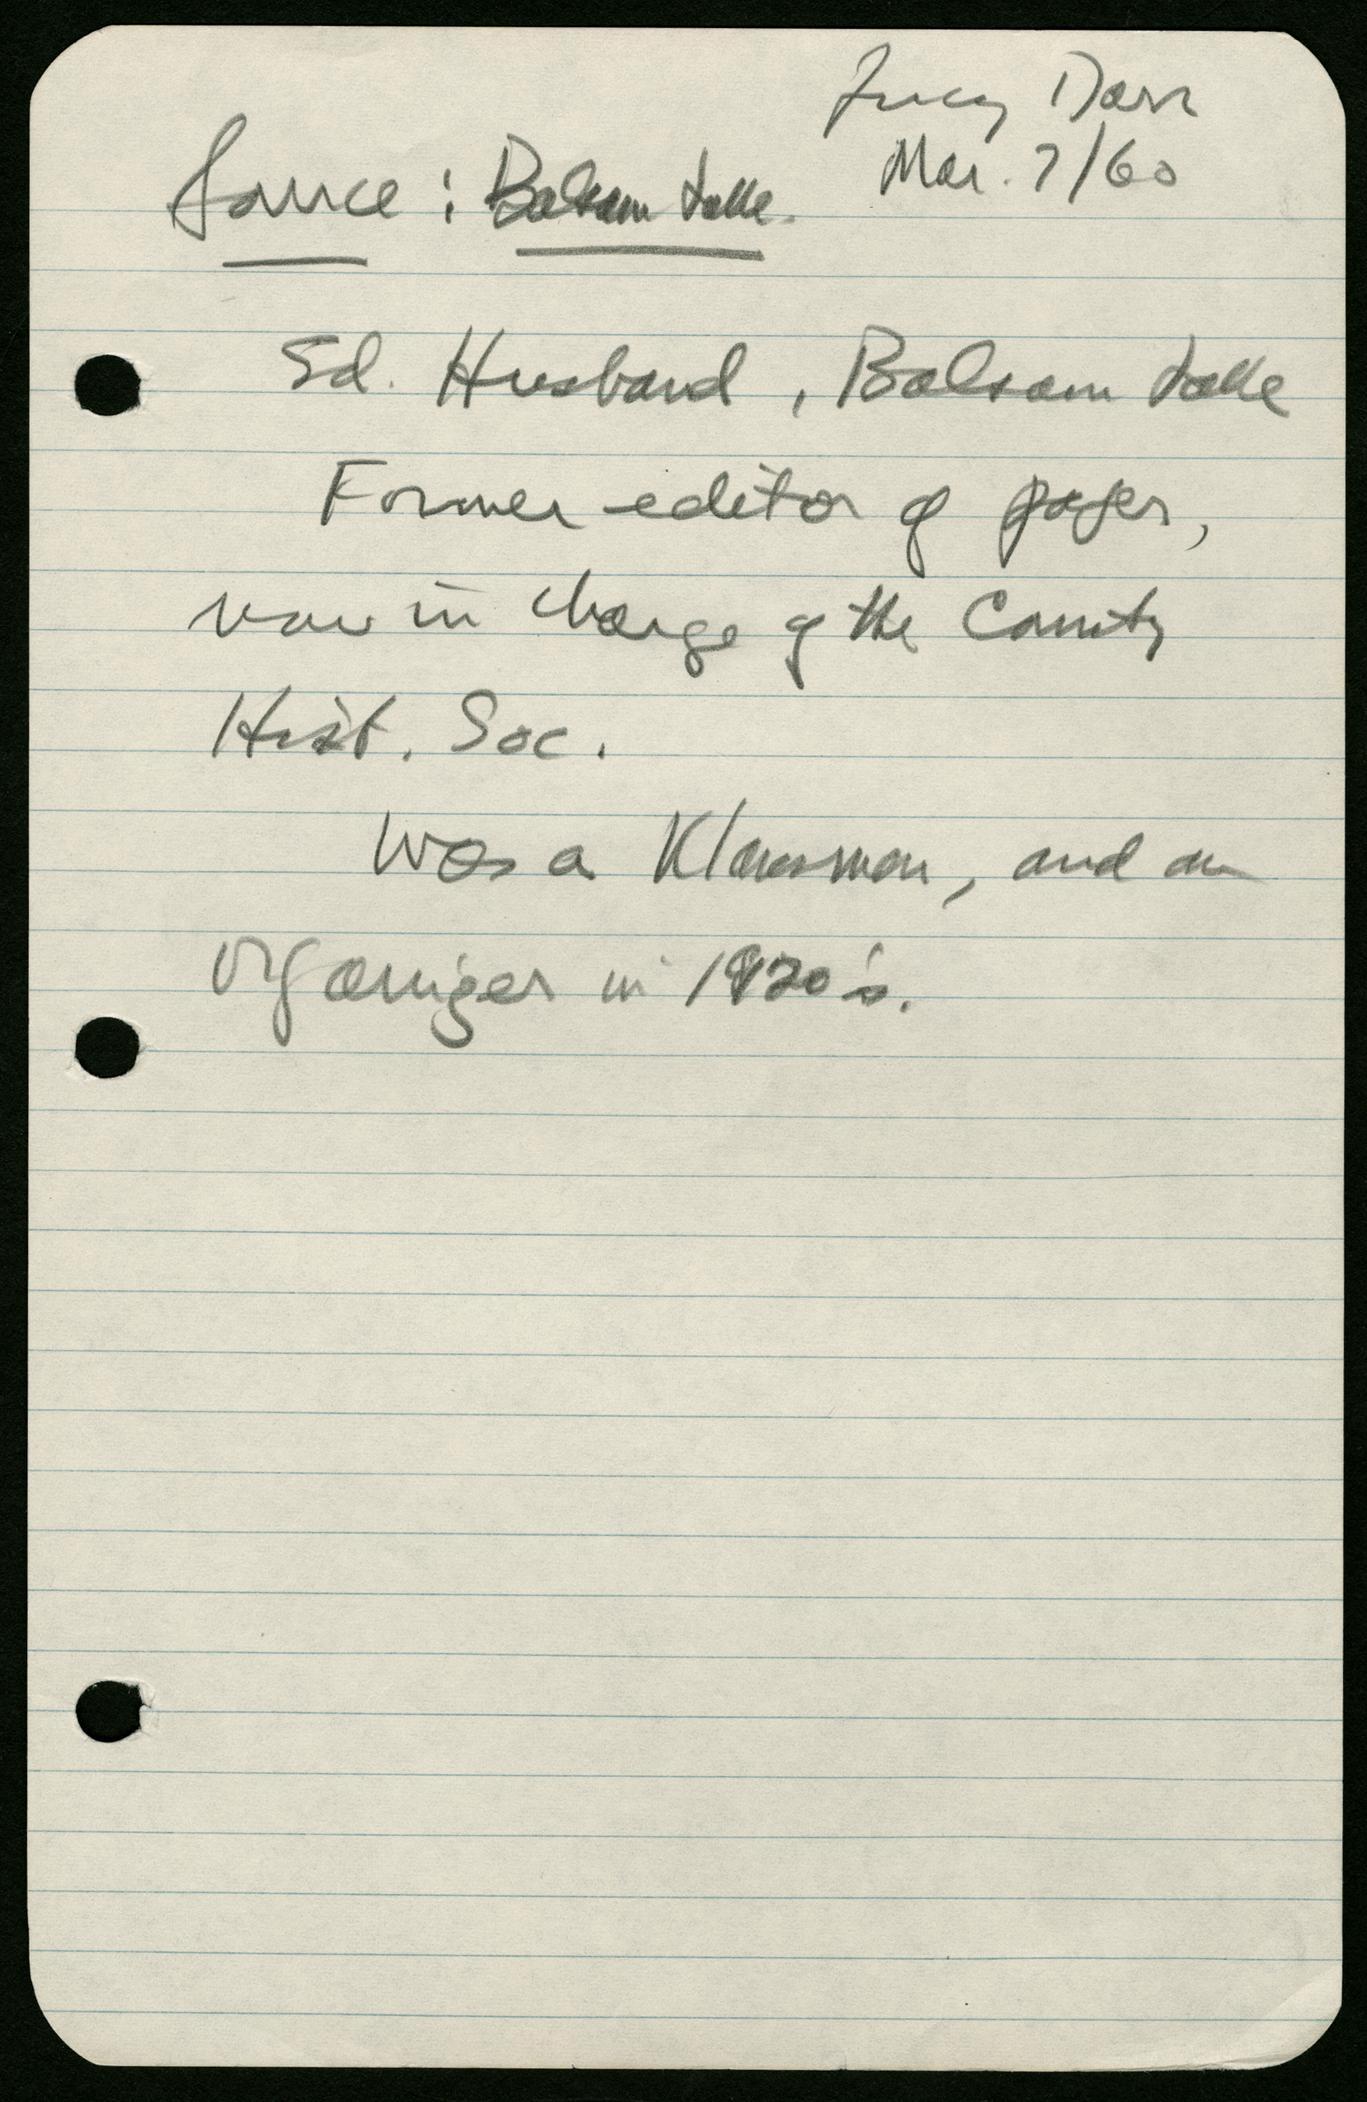 Lucy Dorr
Mar. 7/60
Source : Balsam Lake.
Ed. Husband, Balsam Lake
Former editor of paper,
now in charge of the County
Hist. Soc.
Was a Klansman, and an
organizer in 1920's.